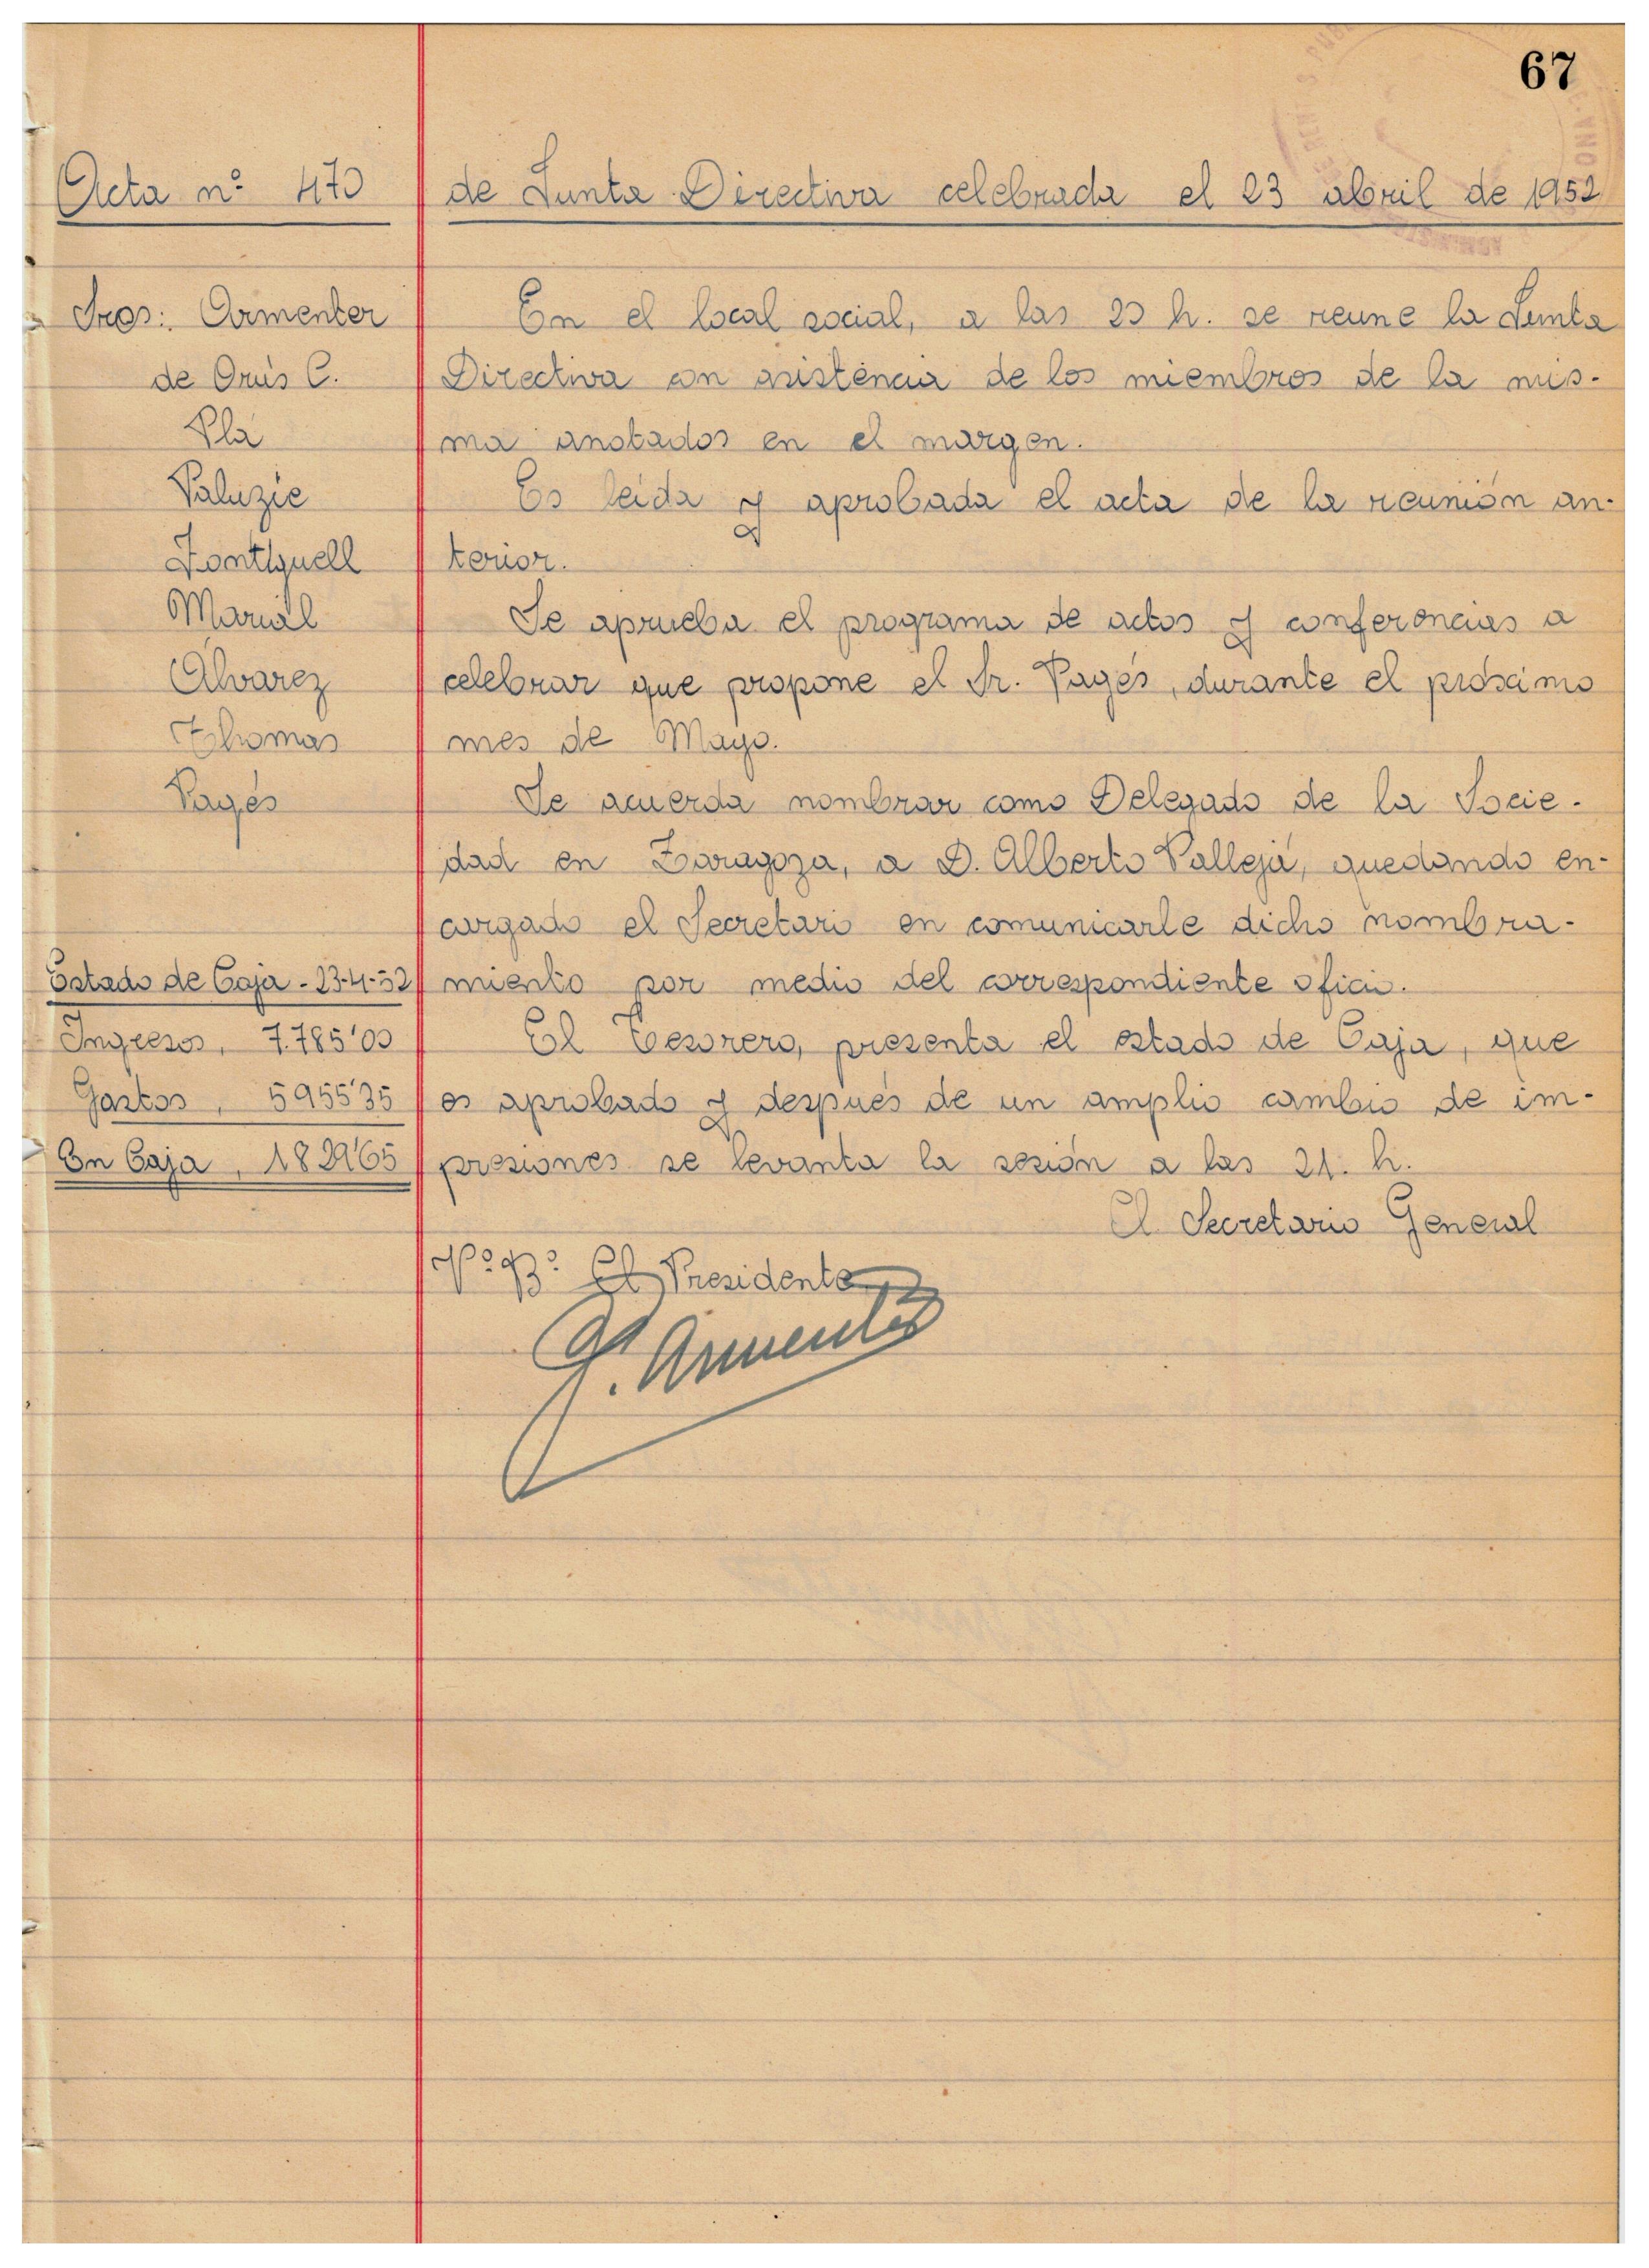 67
Acta nº 470 de Junta Directiva celebrada el 23 abril de 1952
Sres: Armenter
de Orús C.
Plá
Paluzie
Álvarez
Thomas
Pagés
Estado de Caja - 23-4-52
Ingresos, 7.785'00
Gastos, 5955'35
En Caja, 1829'65
En el local social, a las 20 h. se reune la Junta
Directiva con asistencia de los miembros de la mis-
ma anotados en el margen.
Es leida y aprobada el acta de la reunión an-
terior.
Se aprueba el programa de actos y conferencias a
celebrar que propone el Sr. Pagés, durante el próximo
mes de Mayo.
Se acuerda nombrar como Delegado de la Socie-
dad en Zaragoza, a D. Alberto Pallejá, quedando en-
cargado el Secretario en comunicarle dicho nombra-
miento por medio del correspondiente oficio.
El Tesorero, presenta el estado de Caja, que
es aprobado y después de un amplio cambio de im-
presiones se levanta la sesión a las 21. h.
El Secretario General
Vº Bº El Presidente
Armenter